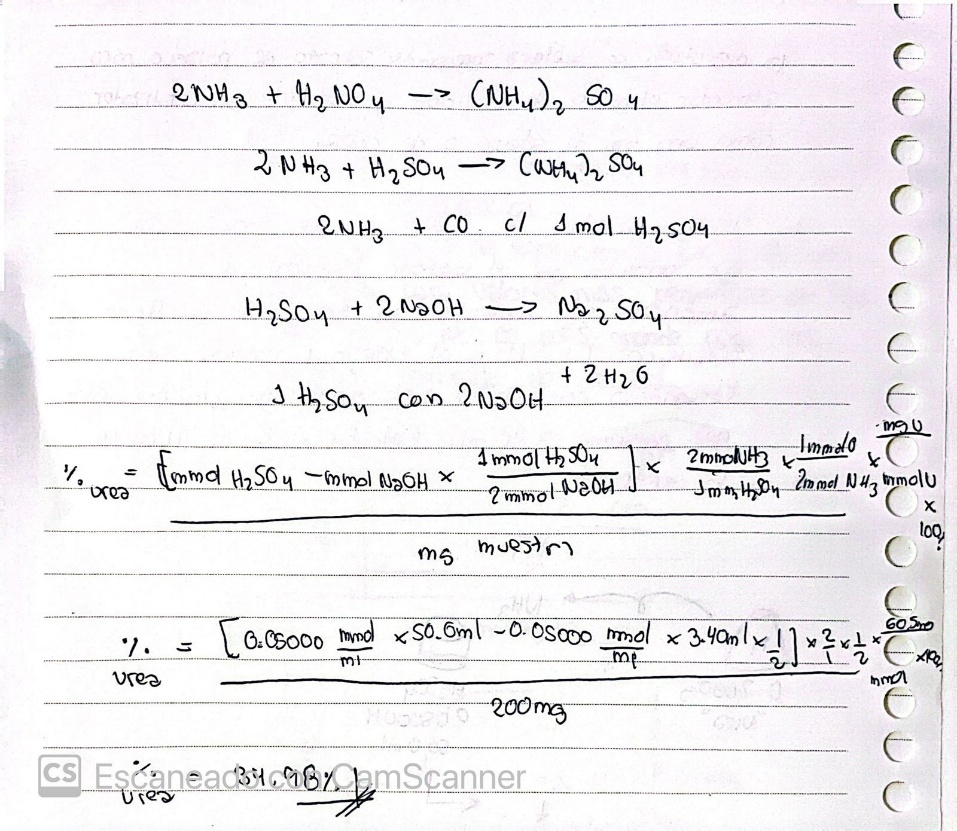 2NH3 + H2NO4 -> (NH4)2 SO4
2NH3 + H2SO4 -> (NH4)2 SO4
2NH3 + CO c/ 1 mol H2SO4
H2SO4 + 2NaOH -> Na2SO4
+ 2H2O
1 H2SO4 con 2NaOH
% urea = [mmol H2SO4 - mmol NaOH x 1 mmol H2SO4 / 2 mmol NaOH] x 2 mmol NH3 / 1 mm H2SO4 x 1 mmol U / 2 mmol NH3 x mg U / mmol U x 100
mg muestra
% urea = [0.05000 mmol/ml x 50.0ml - 0.05000 mmol/ml x 3.40ml x 1/2] x 2/1 x 1/2 x mmol x100
200mg
CS Escaneado con CamScanner
% urea =